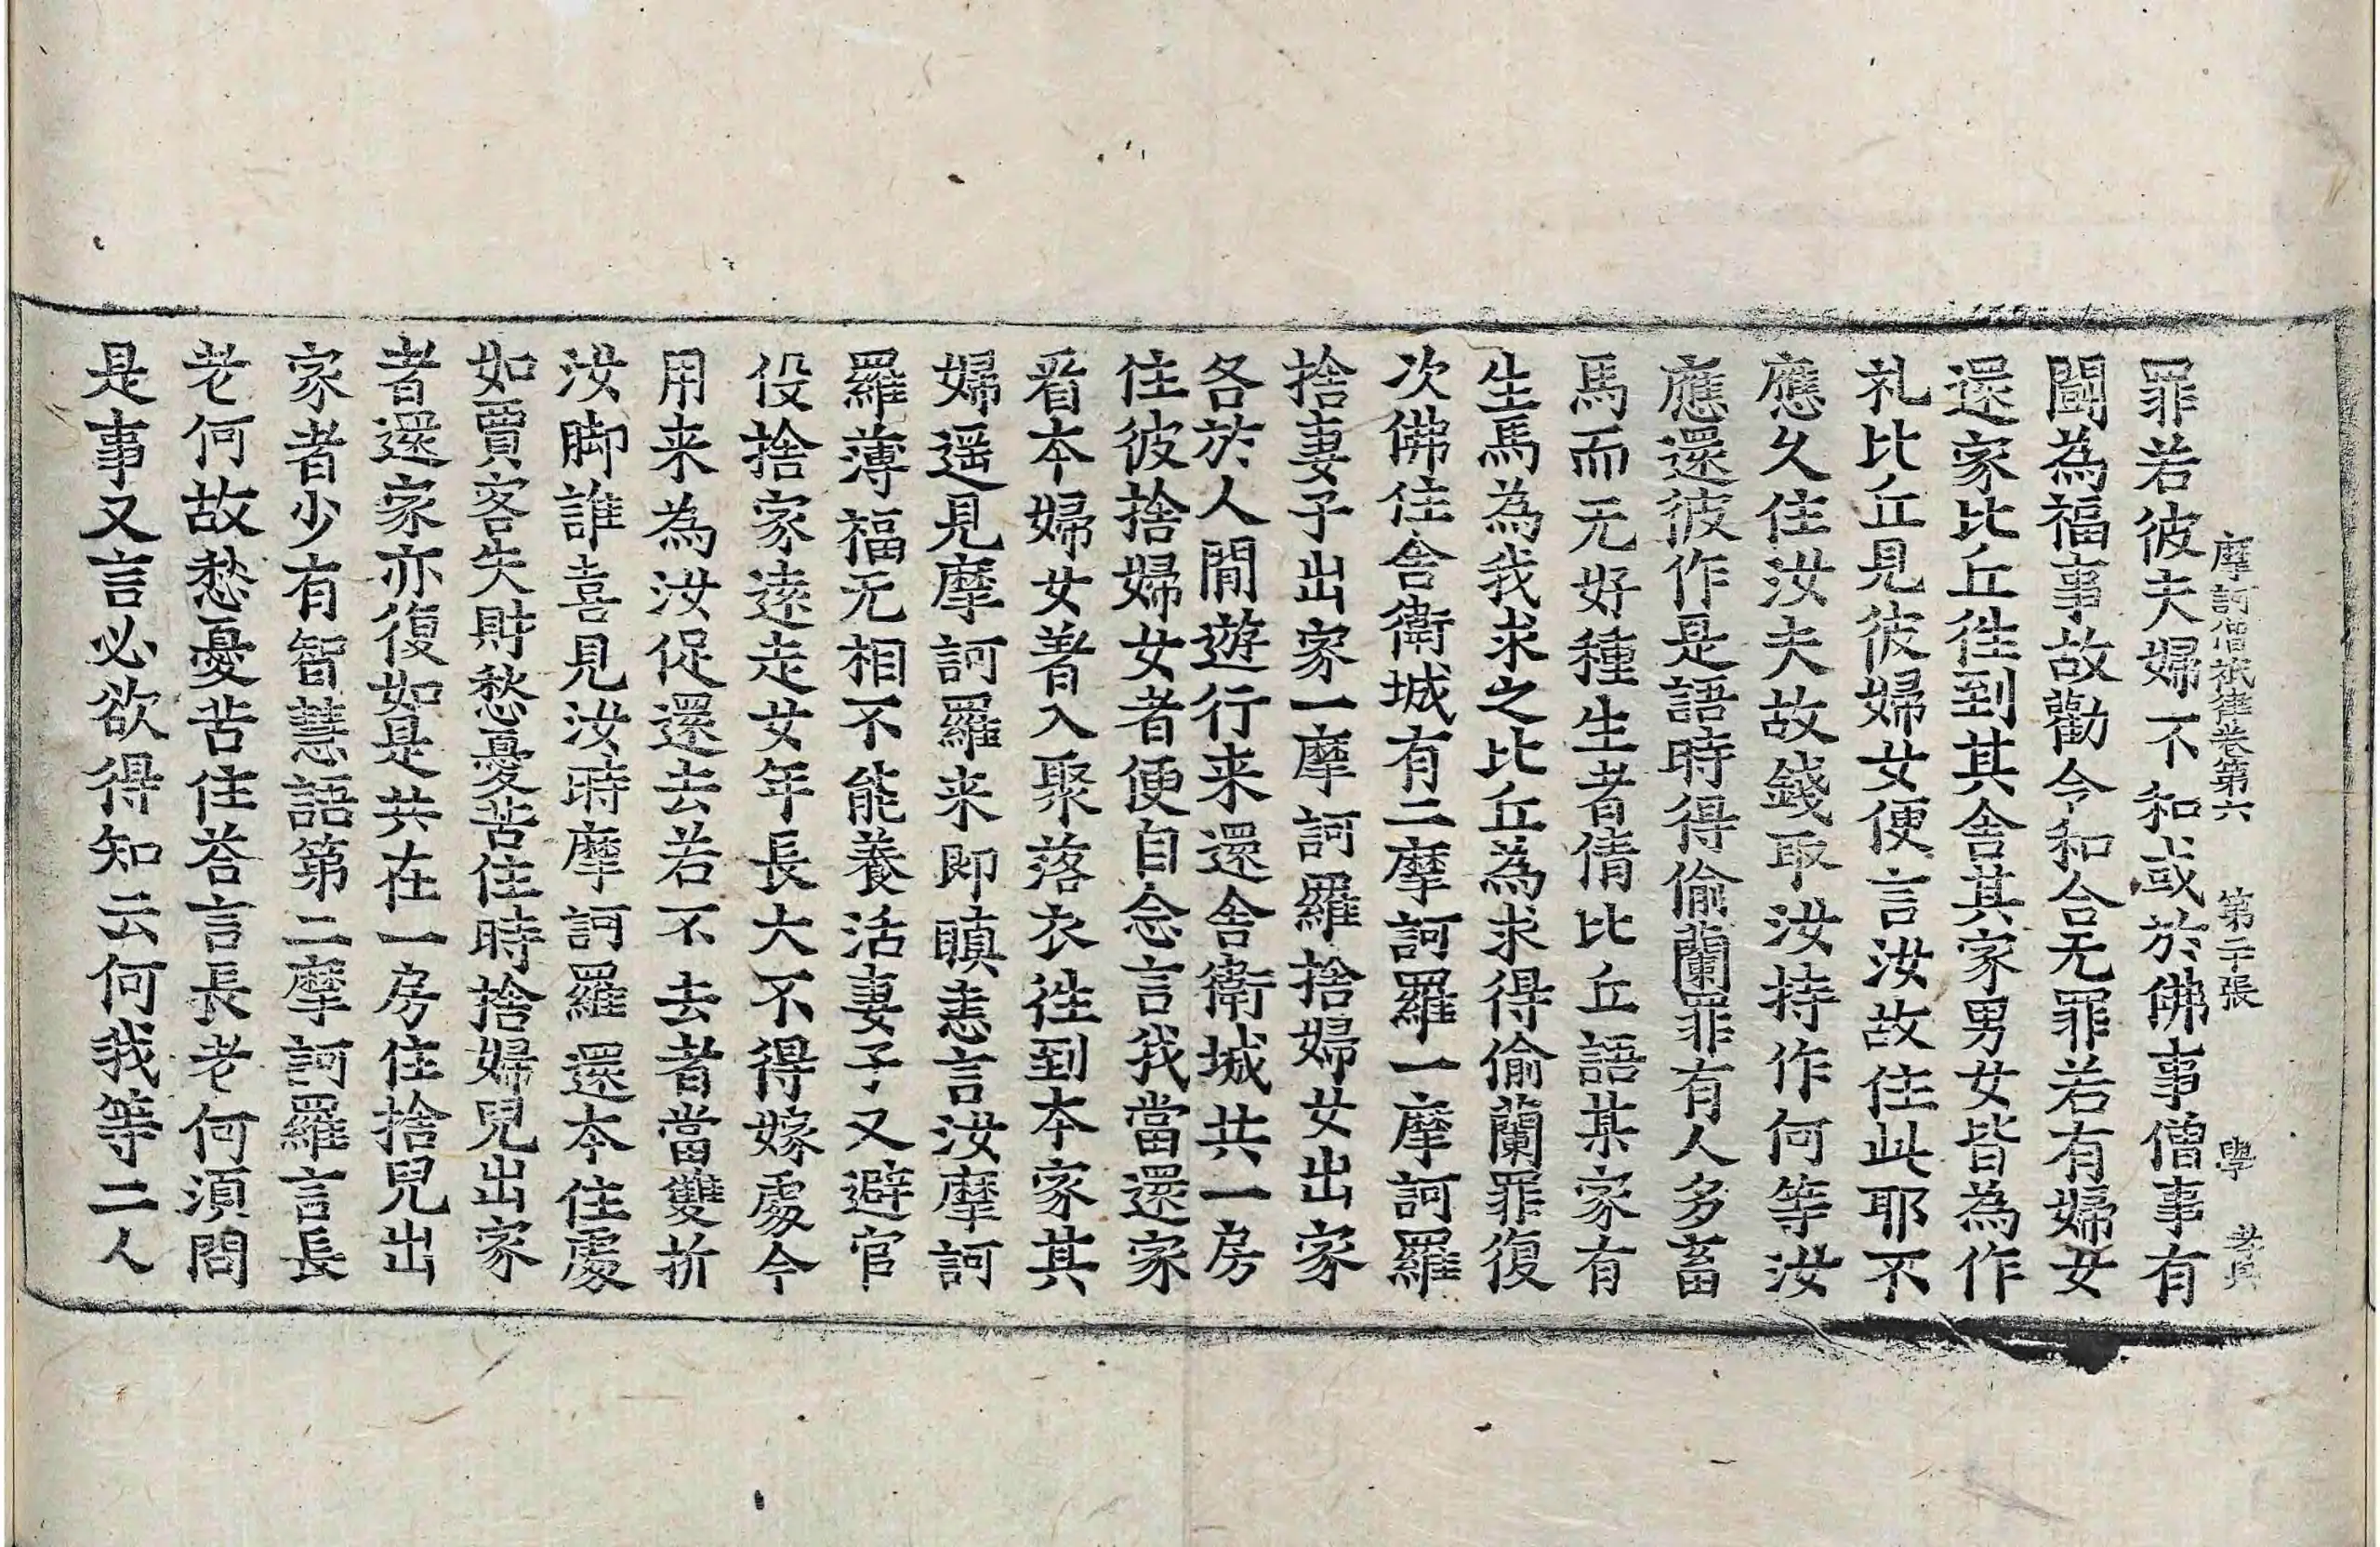 摩訶僧祇律卷第六　第二十張　學
罪若彼夫婦不和或於佛事僧事有
闘為福事故勸令和合无罪若有婦女
還家比丘徃到其舍其家男女皆為作
礼比丘見彼婦女便言汝故住此耶不
應久住汝夫故錢取汝持作何等汝
應還彼作是語時得偷蘭罪有人多畜
馬而无好種生者倩比丘語某家有
生馬為我求之比丘為求得偷蘭罪復
次佛住舍衛城有二摩訶羅一摩訶羅
捨妻子出家一摩訶羅捨婦女出家
各於人間遊行来還舍衛城共一房
住彼捨婦女者便自念言我當還家
看本婦女著入聚落衣徃到本家其
婦遥見摩訶羅来即瞋恚言汝摩訶
羅薄福无相不能養活妻子又避官
役捨家遠走女年長大不得嫁處今
用来為汝促還去若不去者當雙折
汝脚誰喜見汝時摩訶羅還本住處
如賈客失財愁憂苦住時捨婦兒出家
者還家亦復如是共在一房住捨兒出
家者少有智慧語第二摩訶羅言長
老何故愁憂苦住荅言長老何湏問
是事又言必欲得知云何我等二人